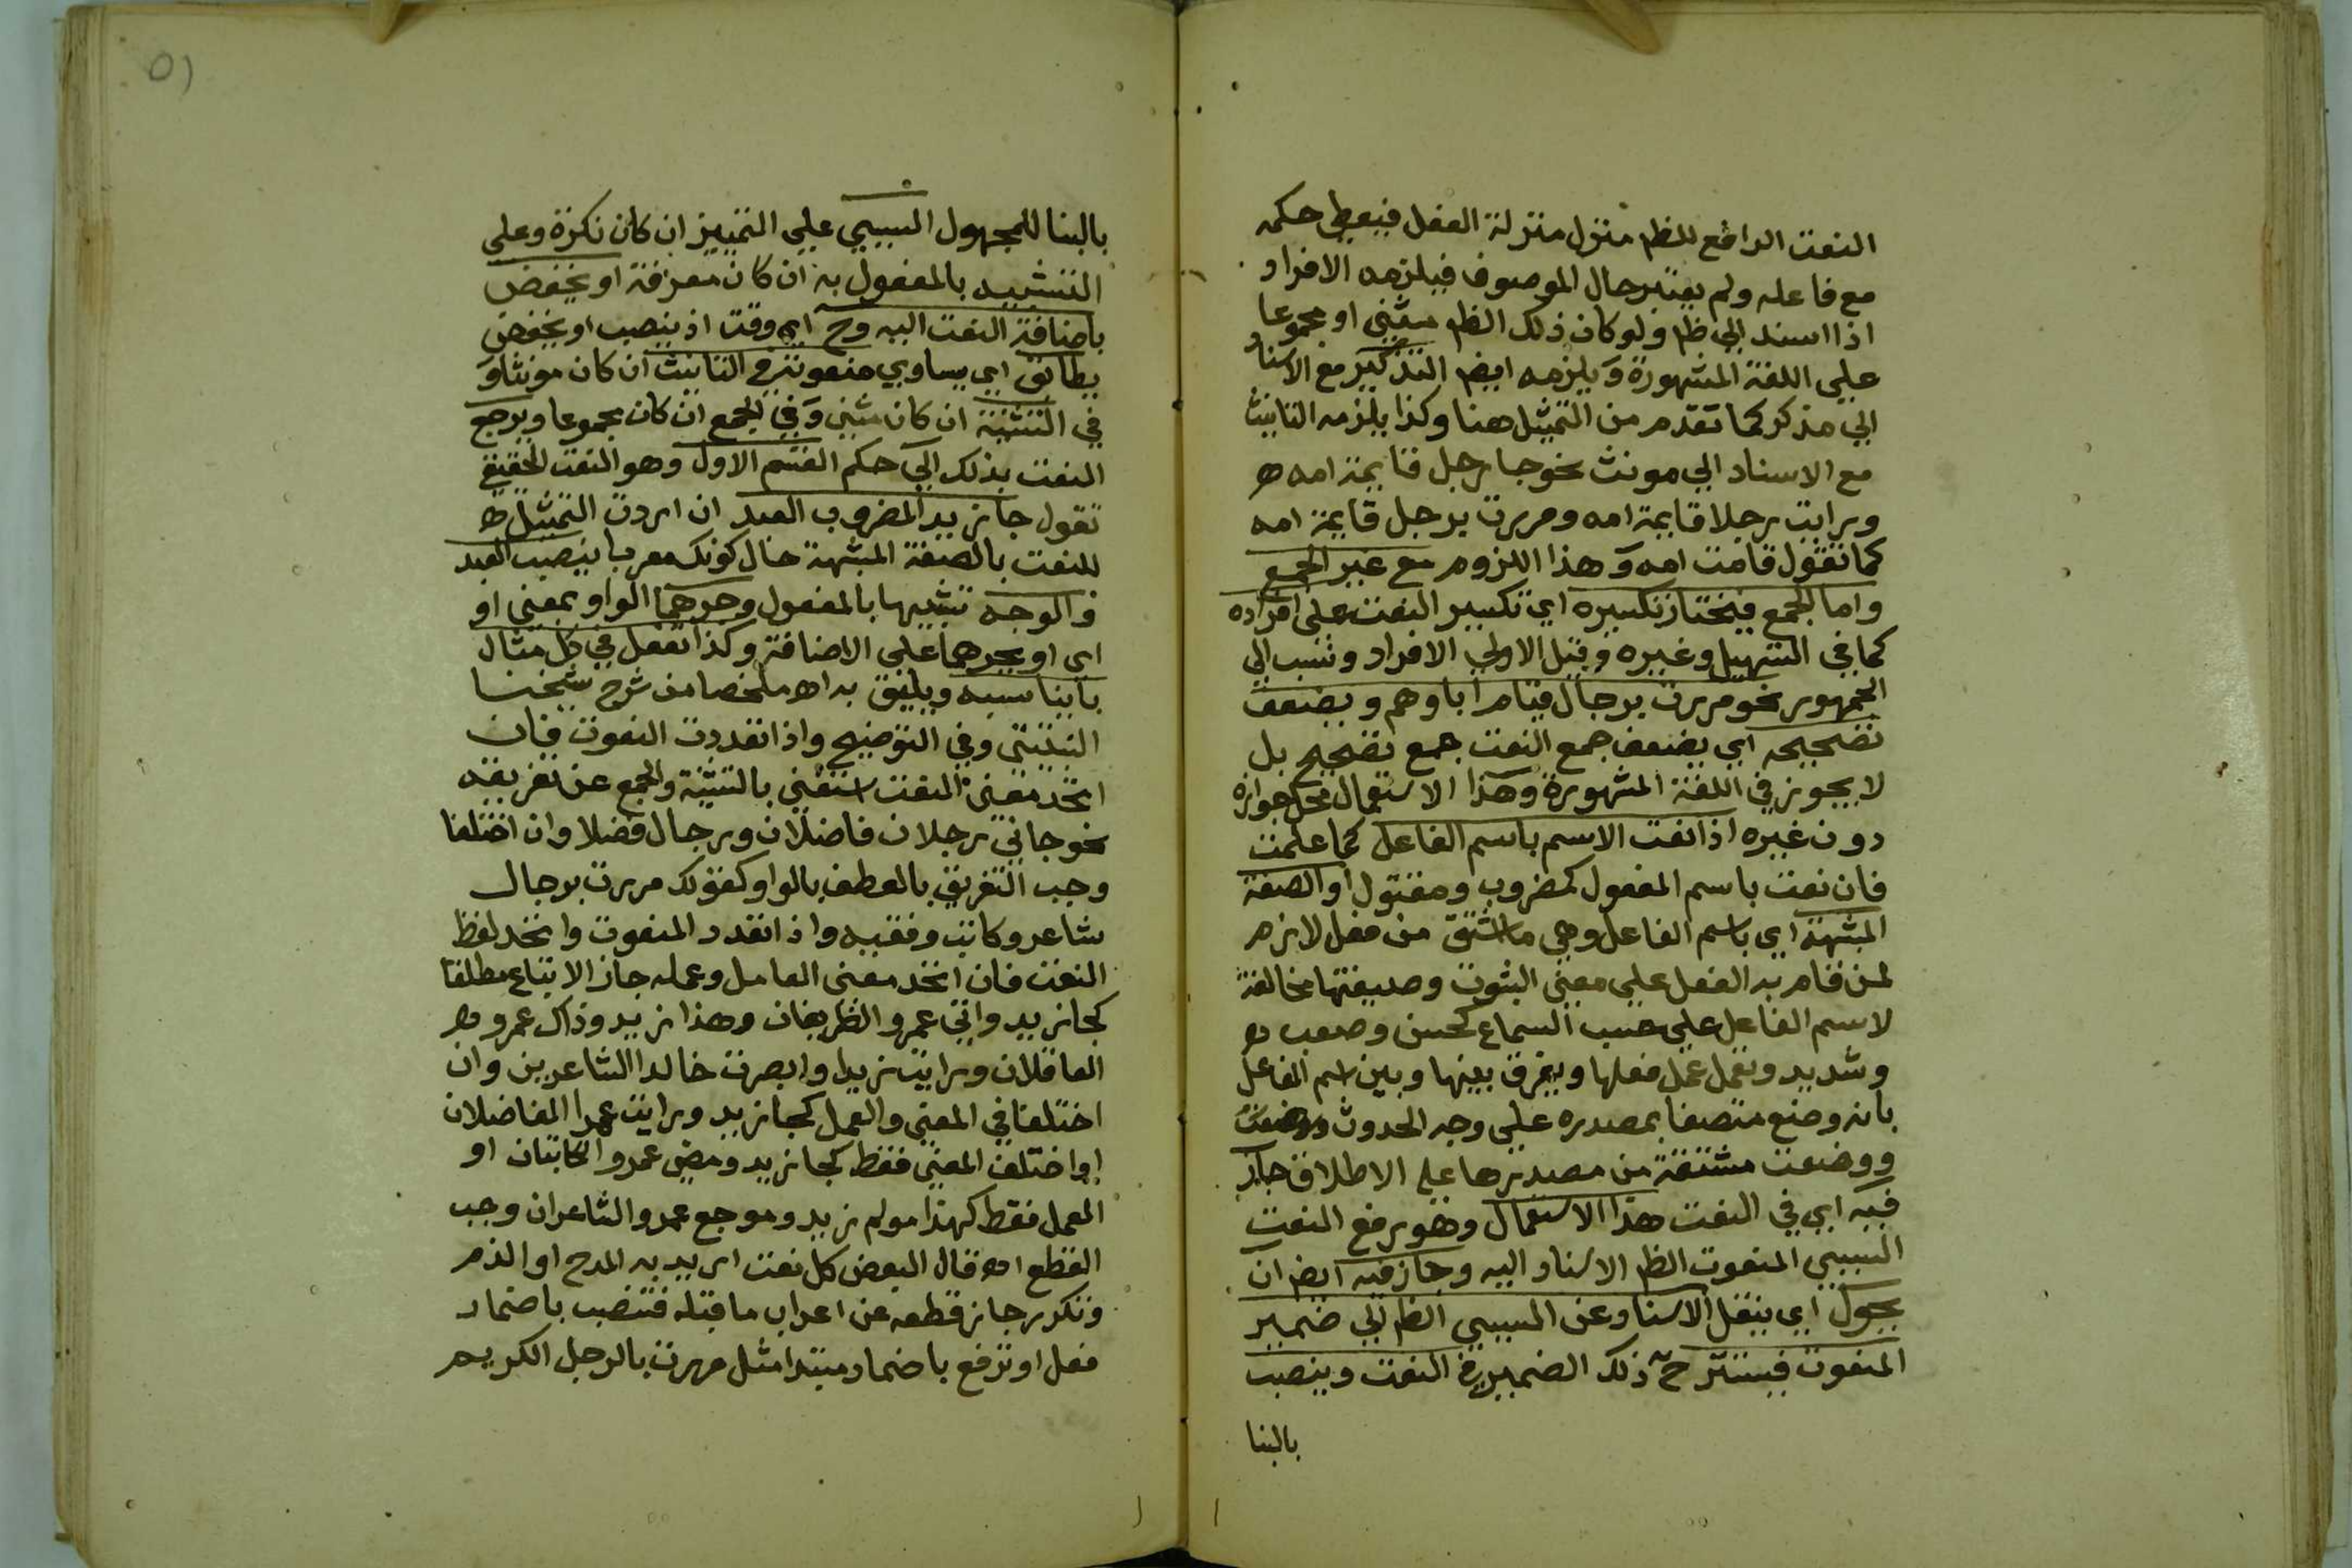 النعت الرافع للظم منزل منزلة الفعل فيعطى حكمه
مع فاعله ولم يعتبر حال الموصوف فيلزمه الافراد
اذا اسند الي ظم ولو كان ذلك الظم مثني او مجموعا
علي اللغة المشهورة ويلزمه ايضم التذكير مع الاسناد
الي مذكر كما تقدم من التمثيل هنا وكذا يلزمه التانيث
مع الاسناد الي مونث نحو جا رجل قايمة امه ه
ورايت رجلا قايمة امه ومررت برجل قايمة امه
كما تقول قامت امه وهذا اللزوم مع غير الجمع
واما الجمع فيختار تكسيره اي تكسير النعت علي افراده
كما في التسهيل وغيره وقيل الاولي الافراد ونسب الي
الجمهور نحو مررت برجال قيام اباوهم ويضعف
تصحيحه اي يضعف جمع النعت جمع تصحيح بل
لا يجوز في اللغة المشهورة وهذا الاستعمال محل جوازه
دون غيره اذا نعت الاسم باسم الفاعل كما علمت
فان نعت باسم المفعول كمضروب ومقتول او الصفة
المشبهة اي باسم الفاعل وهي ما اشتق من فعل لازم
لمن قام به الفعل علي معني الثبوت وصيغتها مخالفة
لاسم الفاعل علي حسب السماع كحسن وصعب ه
وشديد وتعمل عمل فعلها ويفرق بينها وبين اسم الفاعل
بانه وضع متصفا بمصدره علي وجه الحدوث
ووضعت مشتقة من مصدرها علي الاطلاق جاز
فيه اي في النعت هذا الاستعمال وهو رفع النعت
السببي المنعوت الظم الاسناد اليه وجاز فيه ايضم ان
يحول اي ينقل الاسناد عن السببي الظم الي ضمير
المنعوت فيستتر ح ذلك الضمير في النعت وينصب
بالبنا
٥١
بالبنا للمجهول السببي علي التمييز ان كان نكرة وعلي
التشبيه بالمفعول به ان كان معرفة او يخفض
باضافة النعت اليه وح اي وقت اذ ينصب او يخفض
يطابق اي يساوي منعوته في التانيث ان كان مونثا و
في التثنية ان كان مثني وفي الجمع ان كان مجموعا ويرجع
النعت بذلك الي حكم القسم الاول وهو النعت الحقيقي
تقول جا زيد المضروب العبد ان اردت التمثيل ه
للنعت بالصفة المشبهة حال كونك معربا بنصب العبد
والوجه تشبيها بالمفعول وجرهما الواو بمعني او
اي او بجرهما علي الاضافة وكذا تفعل في كل مثال
بايناسبه ويليق به اه ملخصا من شرح شيخنا
النبتيتي وفي التوضيح واذا تعددت النعوت فان
اتحد معني النعت استغني بالتثنية والجمع عن تفريقه
نحو جاني رجلان فاضلان ورجال فضلا وان اختلفا
وجب التفريق بالعطف بالواو كقولك مررت برجال
شاعر وكاتب وفقيه واذا تعدد المنعوت واتحد لفظ
النعت فان اتحد معني العامل وعمله جاز الاتباع مطلقا
كجا زيد واتي عمرو الظريفان وهذا زيد وذاك عمرو ه
العاقلان ورايت زيدا وابصرت خالدا الشاعرين وان
اختلفا في المعني والعمل كجا زيد ورايت عمرا الفاضلان
او اختلف المعني فقط كجا زيد ومضي عمرو الكاتبان او
العمل فقط كهذا مولم زيد وموجع عمرو الشاعران وجب
القطع اه قال البعض كل نعت اريد به المدح او الذم
وتكرر جاز قطعه عن اعراب ما قبله فتنصب باضمار
فعل او ترفع باضمار مبتدا مثل مررت بالرجل الكريم